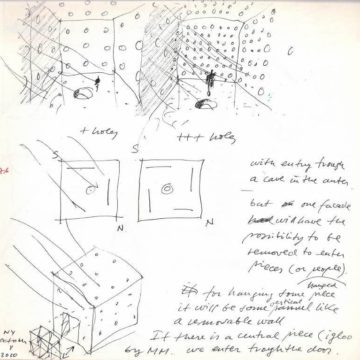 + holes
+++ holes
S
S
N
N
with entry trough
a cave in the center.
but one facade
will have the
possibility to be
removed to enter
pieces (or people)
for hanging some piece
it will be some vertical pannel like
a removable wall
If there is a central piece (igloo
by MM. we enter trough the door.
NY
2020